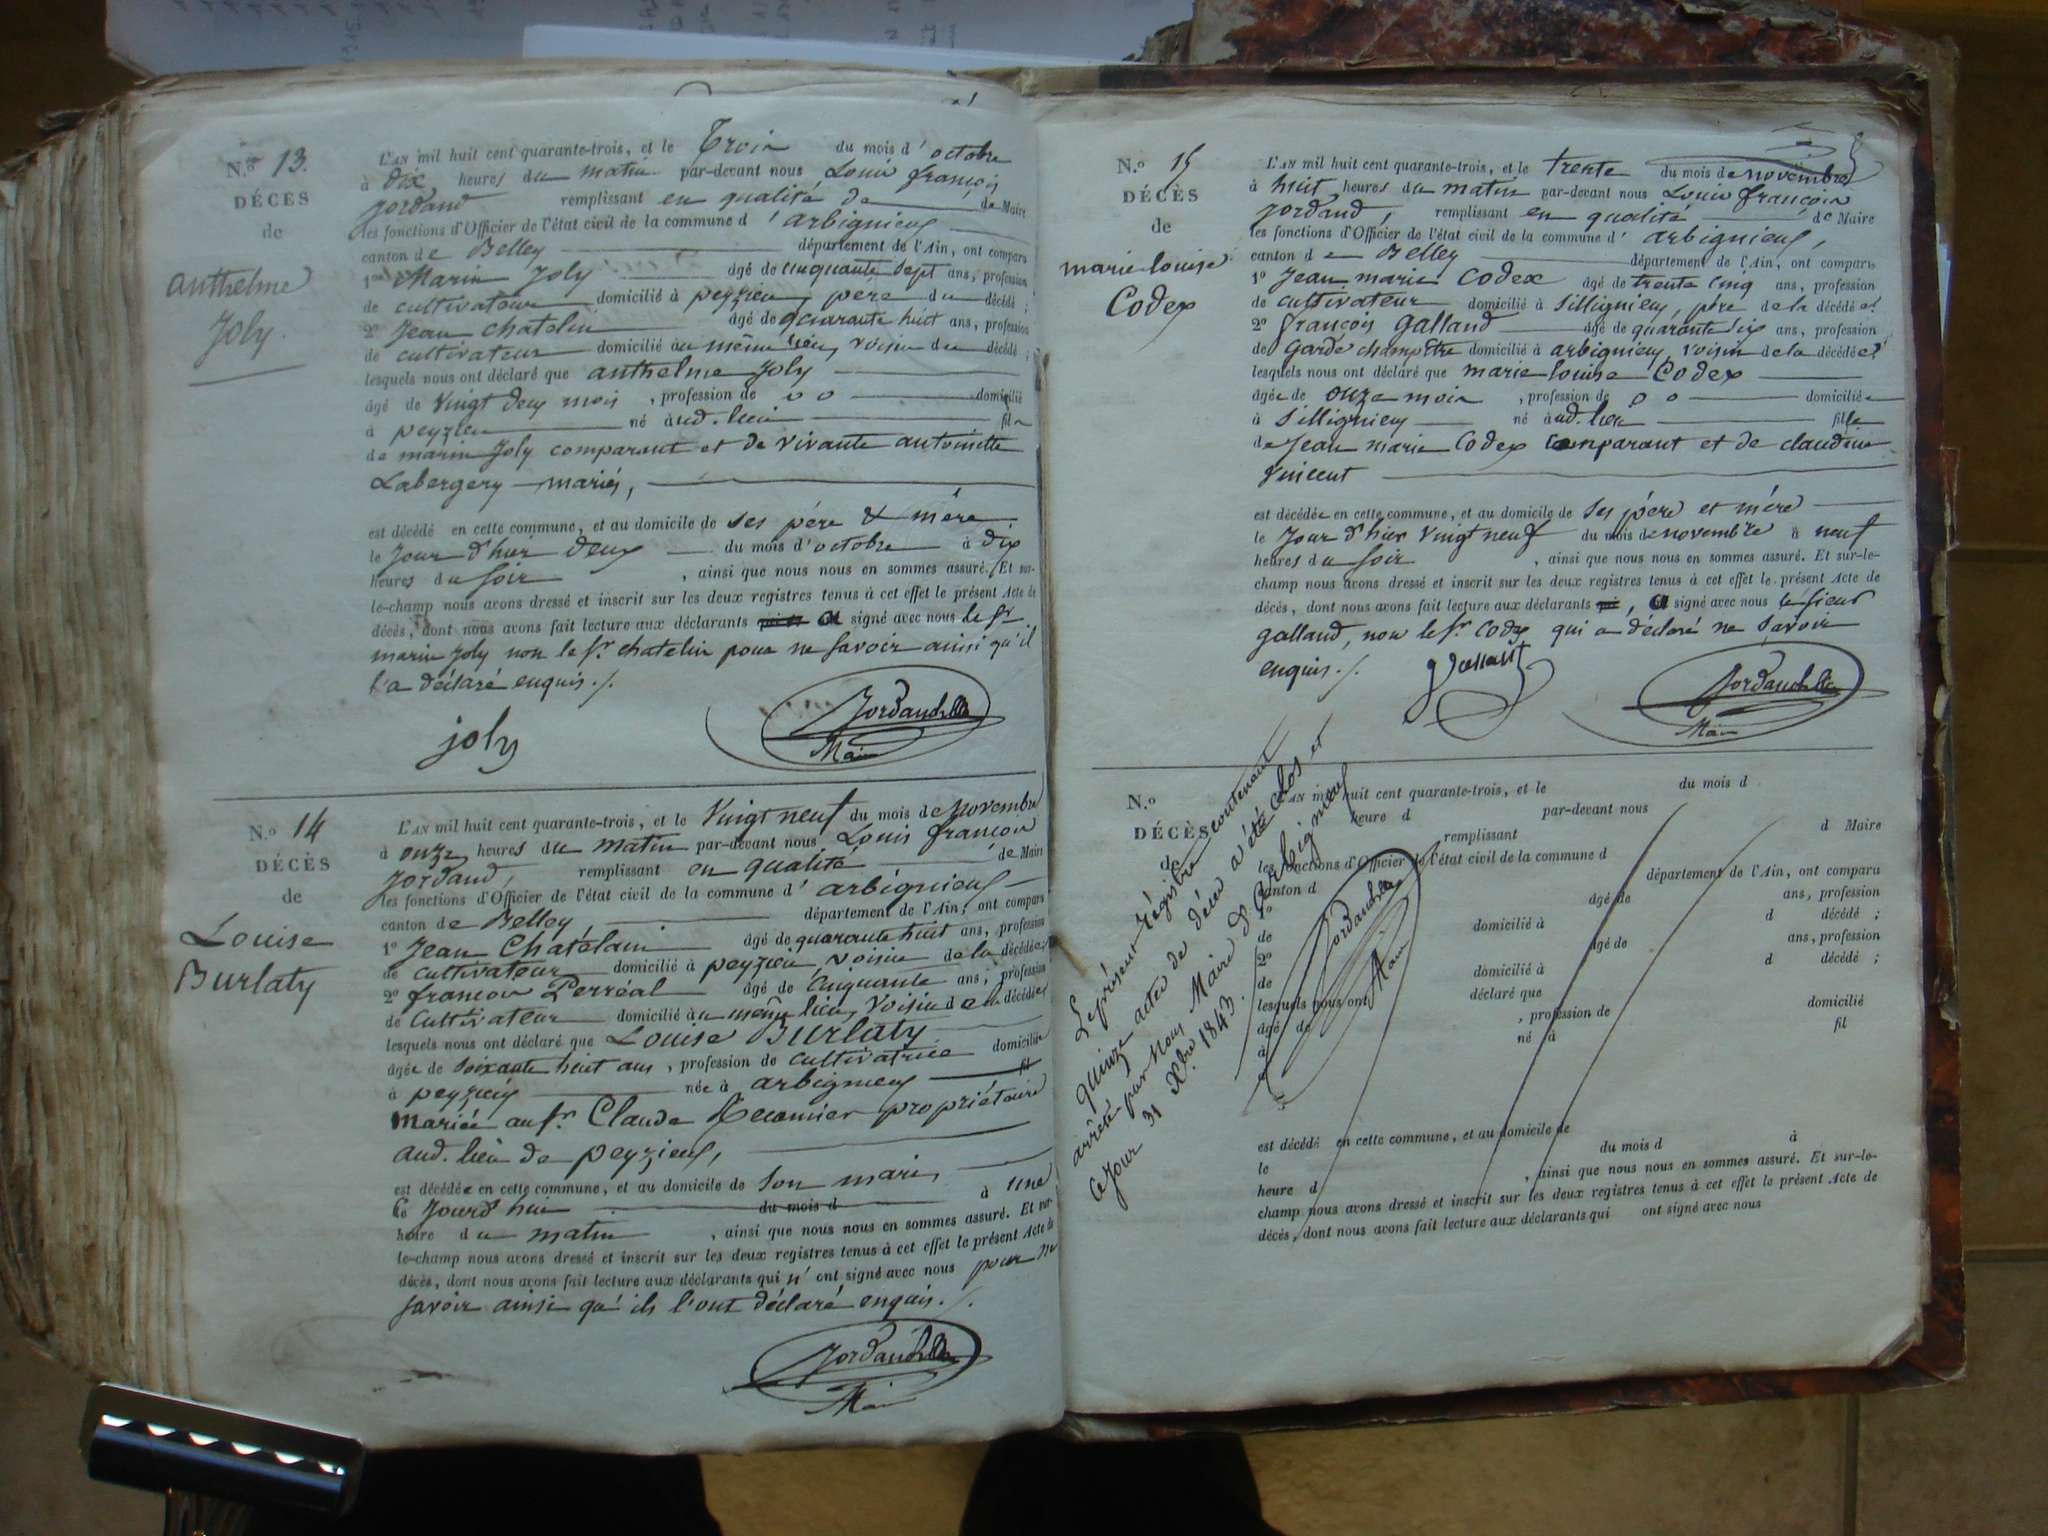 N.º 13.
DÉCES
de
anthelme
Joly.
L'AN mil huit cent quarante-trois, et le Trois du mois d'octobre
à dix heures du matin par-devant nous Louis françois
Jordand remplissant en qualité de de Maire
les fonctions d'Officier de l'état civil de la commune d'arbignieux
canton de Belley département de l'Ain, ont comparu
1º Marin Joly âgé de cinquante sept ans, profession
de cultivateur domicilié à peyzieu, père du décédé ;
2º Jean chatelin âgé de quarante huit ans, profession
de cultivateur domicilié au même lieu, voisin du décédé ;
lesquels nous ont déclaré que anthelme Joly
âgé de vingt deux mois, profession de o o domicilié
à peyzieu né aud. lieu fils
de marin Joly comparant et de vivante antoinette
Labergery mariés,
est décédé en cette commune, et au domicile de ses père & mère
le Jour d'hier deux du mois d'octobre à dix
heures du soir, ainsi que nous nous en sommes assuré. Et sur-
le-champ nous avons dressé et inscrit sur les deux registres tenus à cet effet le présent Acte de
décès, dont nous avons fait lecture aux déclarants a signé avec nous le sr
marin Joly non le sr. chatelin pour ne savoir ainsi qu'il
l'a déclaré enquis./.
joly
Jordand
Maire
N.º 14
DÉCÈS
de
Louise
Burlaty
L'AN mil huit cent quarante-trois, et le Vingt neuf du mois de Novembre
à onze heures du matin par-devant nous Louis françois
Jordand, remplissant en qualité de Maire
les fonctions d'Officier de l'état civil de la commune d'arbignieux
canton de Belley, département de l'Ain, ont comparu
1º Jean Chatelain âgé de quarante huit ans, profession
de cultivateur domicilié à peyzieu, voisin de la décédée
2º françois Perréal âgé de Cinquante ans, profession
de Cultivateur domicilié au même lieu, voisin de la décédée
lesquels nous ont déclaré que Louise Burlaty
âgée de soixante huit ans, profession de cultivatrice domiciliée
à peyzieu née à arbignieux fil
Mariée au sr. Claude Recamier propriétaire
aud. lieu de peyzieux,
est décédée en cette commune, et au domicile de son mari,
Ce Jourd'hui du mois d à une
heure du matin, ainsi que nous nous en sommes assuré. Et sur-
le-champ nous avons dressé et inscrit sur les deux registres tenus à cet effet le présent Acte de
décès, dont nous avons fait lecture aux déclarants qui n'ont signé avec nous pour ne
savoir ainsi qu'ils l'ont déclaré enquis./.
Jordand
Maire
N.º 15
DÉCÈS
de
marie louise
Codex
L'AN mil huit cent quarante-trois, et le trente du mois de novembre
à huit heures du matin par-devant nous Louis françois
Jordand, remplissant en qualité de Maire
les fonctions d'Officier de l'état civil de la commune d'arbignieux,
canton de Belley département de l'Ain, ont comparu
1º Jean marie Codex âgé de trente cinq ans, profession
de cultivateur domicilié à Sillignieu, père de la décédée
2º françois Galland âgé de quarante six ans, profession
de Garde champêtre domicilié à arbignieu, voisin de la décédée
lesquels nous ont déclaré que marie louise Codex
âgée de onze mois, profession de o o domiciliée
à Sillignieu né aud. lieu fille
de Jean marie Codex comparant et de claudine
Vincent
est décédée en cette commune, et au domicile de ses père et mère
le Jour d'hier vingt neuf du mois de novembre à neuf
heures du soir, ainsi que nous nous en sommes assuré. Et sur-le-
champ nous avons dressé et inscrit sur les deux registres tenus à cet effet le présent Acte de
décès, dont nous avons fait lecture aux déclarants, a signé avec nous le sieur
galland, non le sr. Codex qui a déclaré ne savoir
enquis./.
Galland
Jordand
Maire
N.º
DÉCÈS
de
L'AN mil huit cent quarante-trois, et le du mois d
heure d par-devant nous
remplissant d Maire
les fonctions d'Officier de l'état civil de la commune d
canton d département de l'Ain, ont comparu
1º âgé de ans, profession
de domicilié à d décédé ;
2º âgé de ans, profession
de domicilié à d décédé ;
lesquels nous ont déclaré que
âgé de , profession de domicilié
à né à fil
est décédé en cette commune, et au domicile de
le du mois d à
heure d , ainsi que nous nous en sommes assuré. Et sur-le-
champ nous avons dressé et inscrit sur les deux registres tenus à cet effet le présent Acte de
décès, dont nous avons fait lecture aux déclarants qui ont signé avec nous
Le présent Régistre contenant
quinze actes de décès a été clos et
arrêté par Nous Maire d'arbignieux
ce jour 31 Xbre 1843.
Jordand
Maire